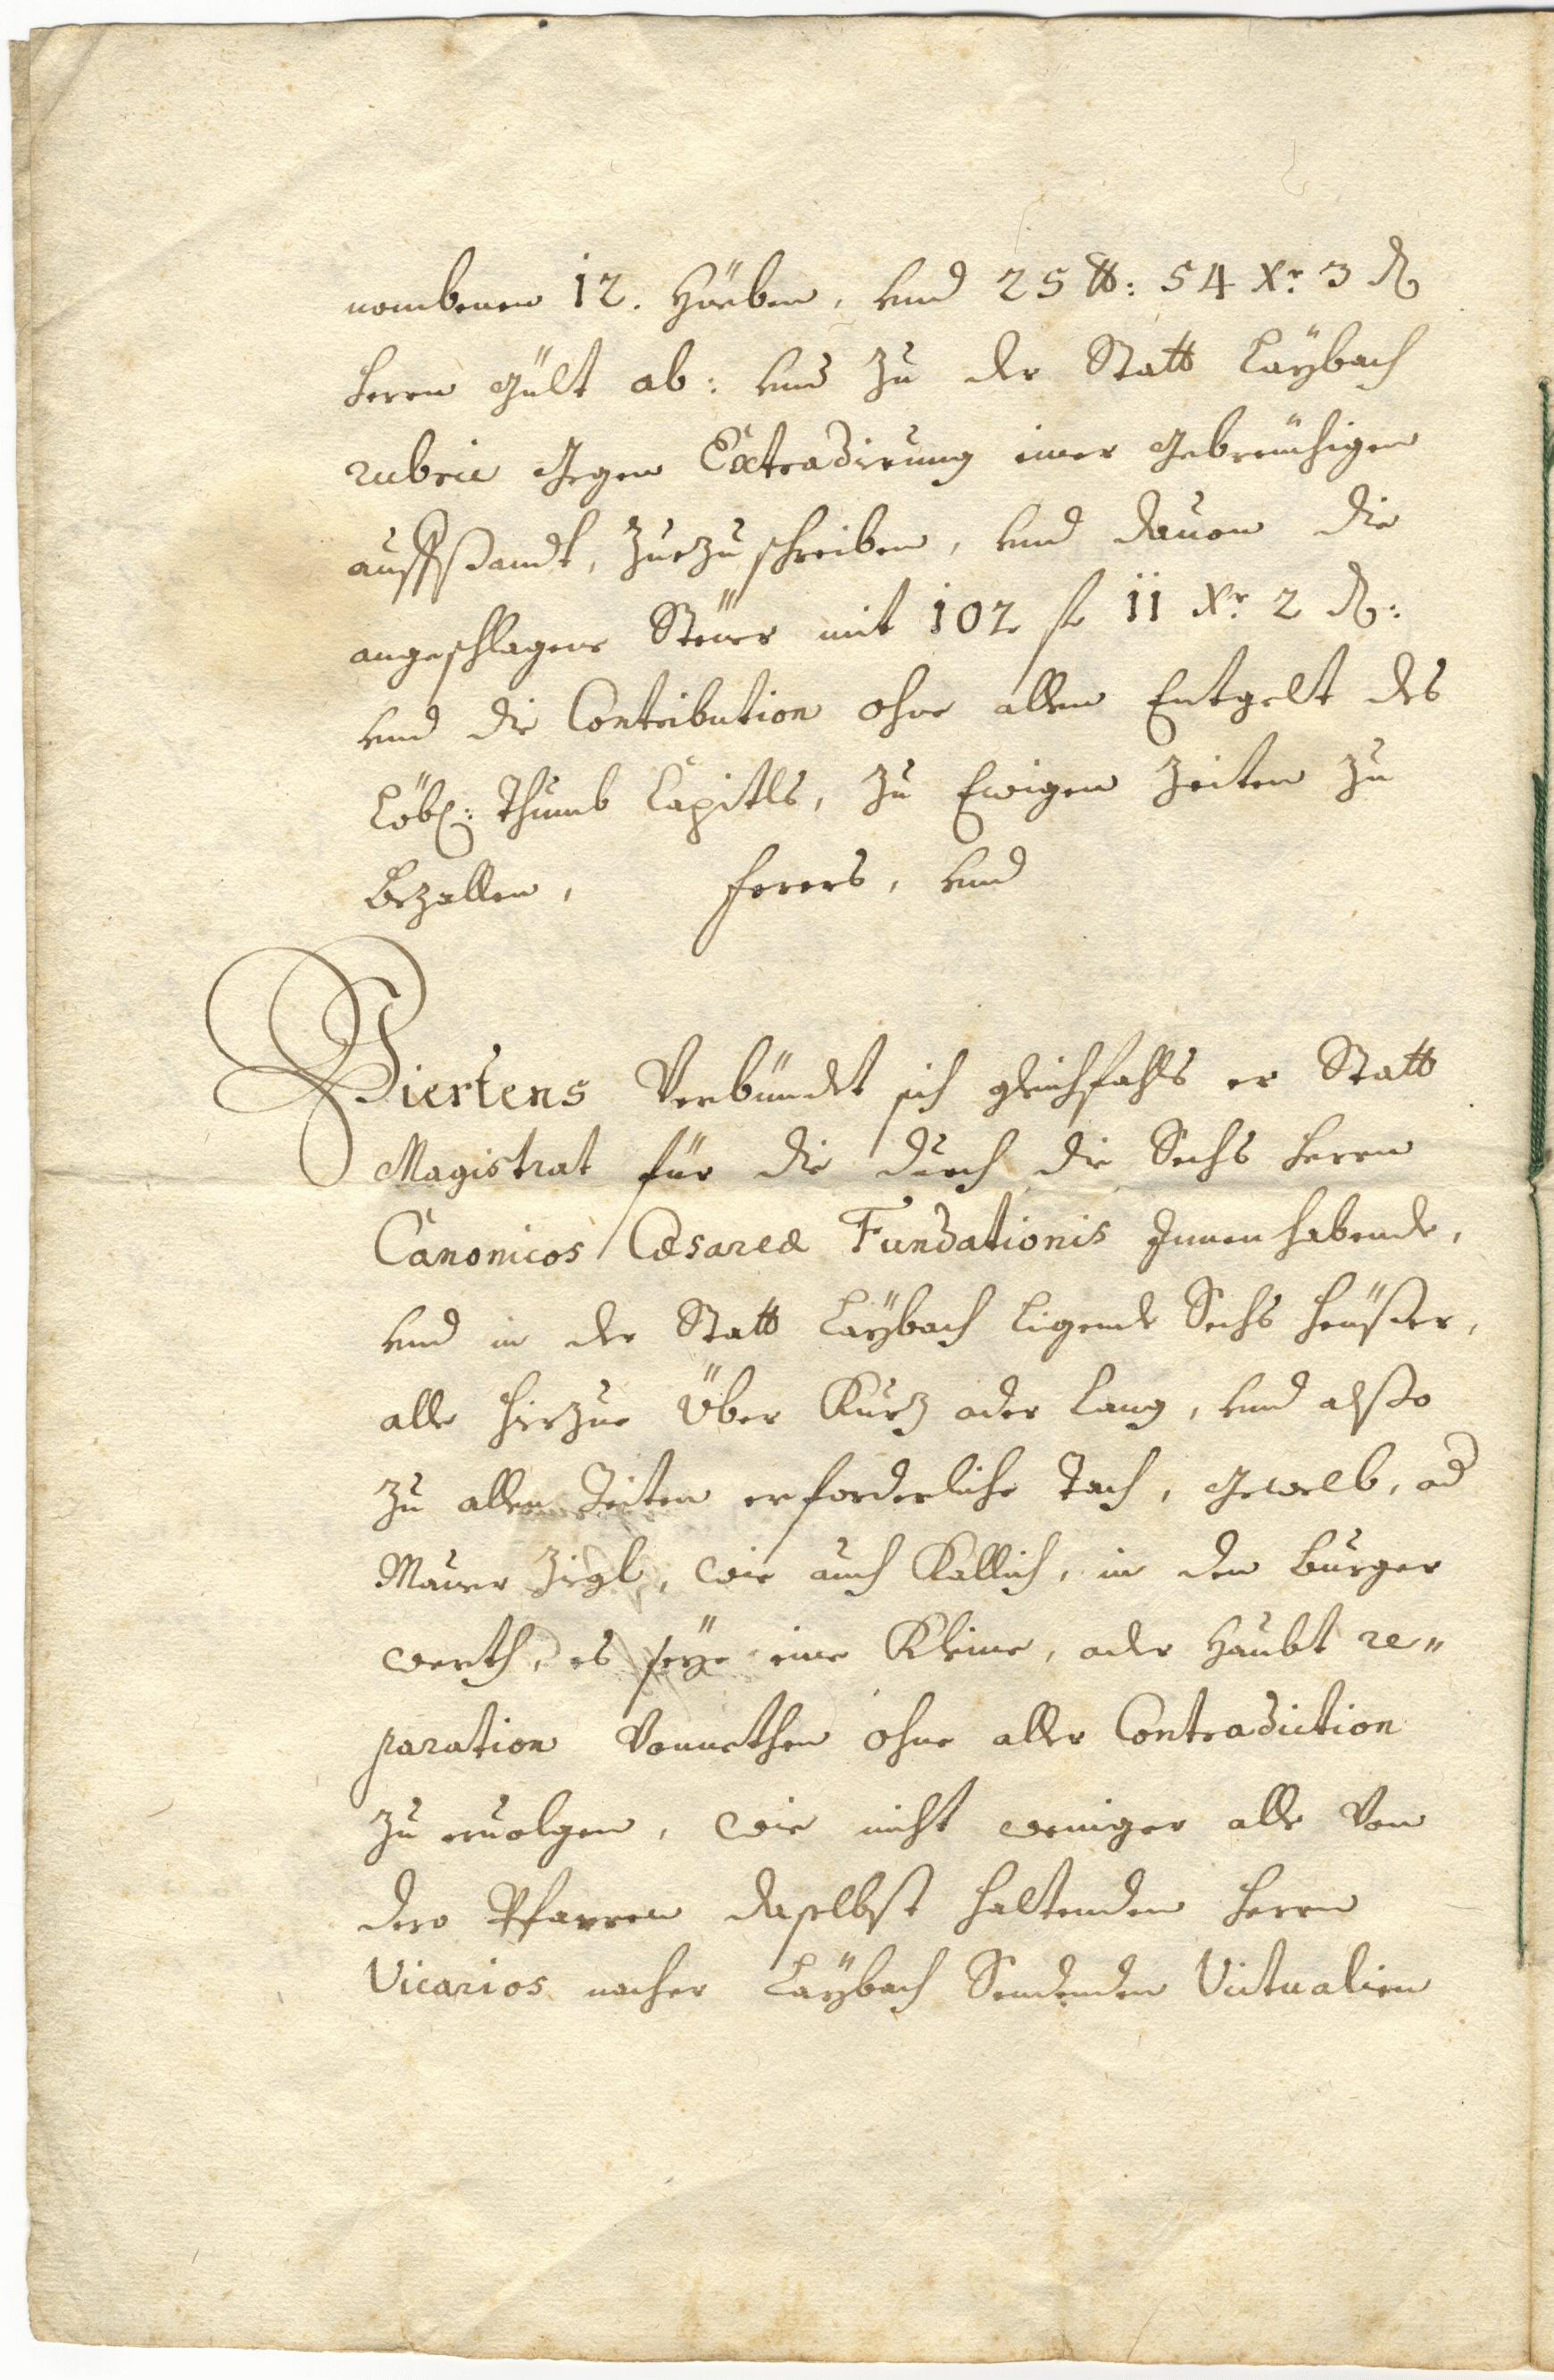 nombenen 12. Hueben, vnd 25 ℔: 54 Xr. 3 ₰
herrn gült ab: vnd zu der Statt Laÿbach
rubric gegen Extradirung einer gebreuchigen
auffsandt, zuezuschreiben, vnd dauon die
angeschlagene Steüer mit 102 fl 11 Xr. 2 ₰:
vnd die Contribution ohne allen Entgelt des
Löbl: Thumb Capitls, zu Ewigen Zeiten zu
bezallen, ferers, vnd
Viertens Verbündet sich gleichfahls er Statt
Magistrat für die durch die Sechs herrn
Canonicos Cæsareæ Fundationis Innenhabende,
vnd in der Statt Laÿbach ligende Sechs heüßer,
alle hirzue Über Kurz oder lang, vnd alßo
zu allen Zeiten erforderliche Tach, gewelb, od
Maurer Zigl, wie auch Kallich, in den burger
werth, es seÿe eine Kleine, oder Haubt re„
paration Vonnethen ohne aller Contradiction
zu eruolgen, wie nicht weniger alle Von
dero Pfarren daselbst haltenden herrn
Vicarios nacher Laÿbach Sendenden Victualien